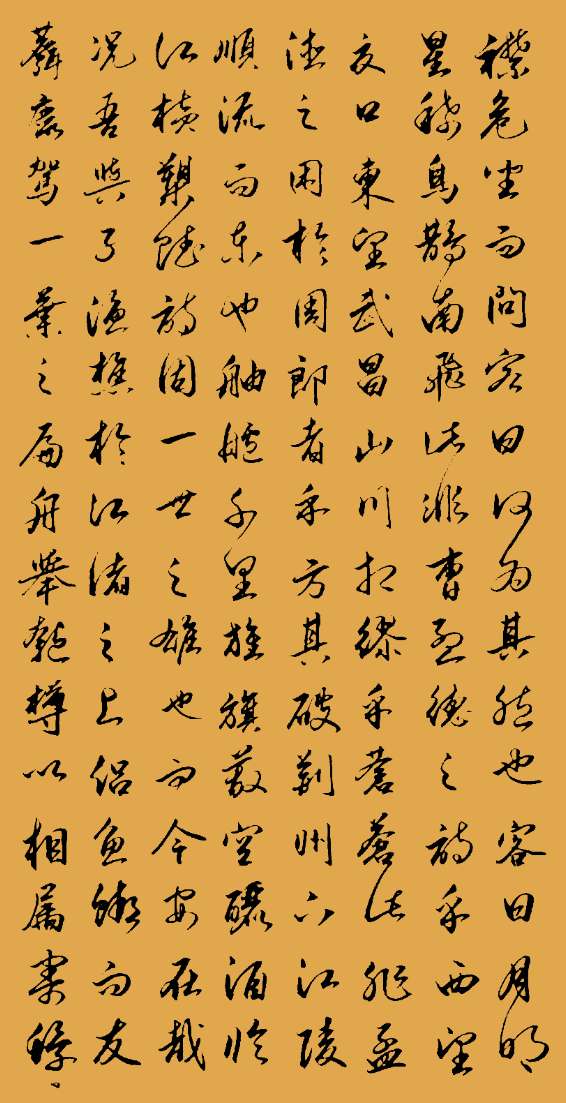 襟危坐而問客曰何為其然也客曰月明
星稀烏鵲南飛此非曹孟德之詩乎西望
夏口東望武昌山川相繆乎蒼蒼此非孟
德之困於周郎者乎方其破荊州下江陵
順流而東也舳艫千里旌旗蔽空釃酒臨
江橫槊賦詩固一世之雄也而今安在哉
况吾與子漁樵於江渚之上侶魚蝦而友
麋鹿駕一葉之扁舟舉匏樽以相屬寄蜉